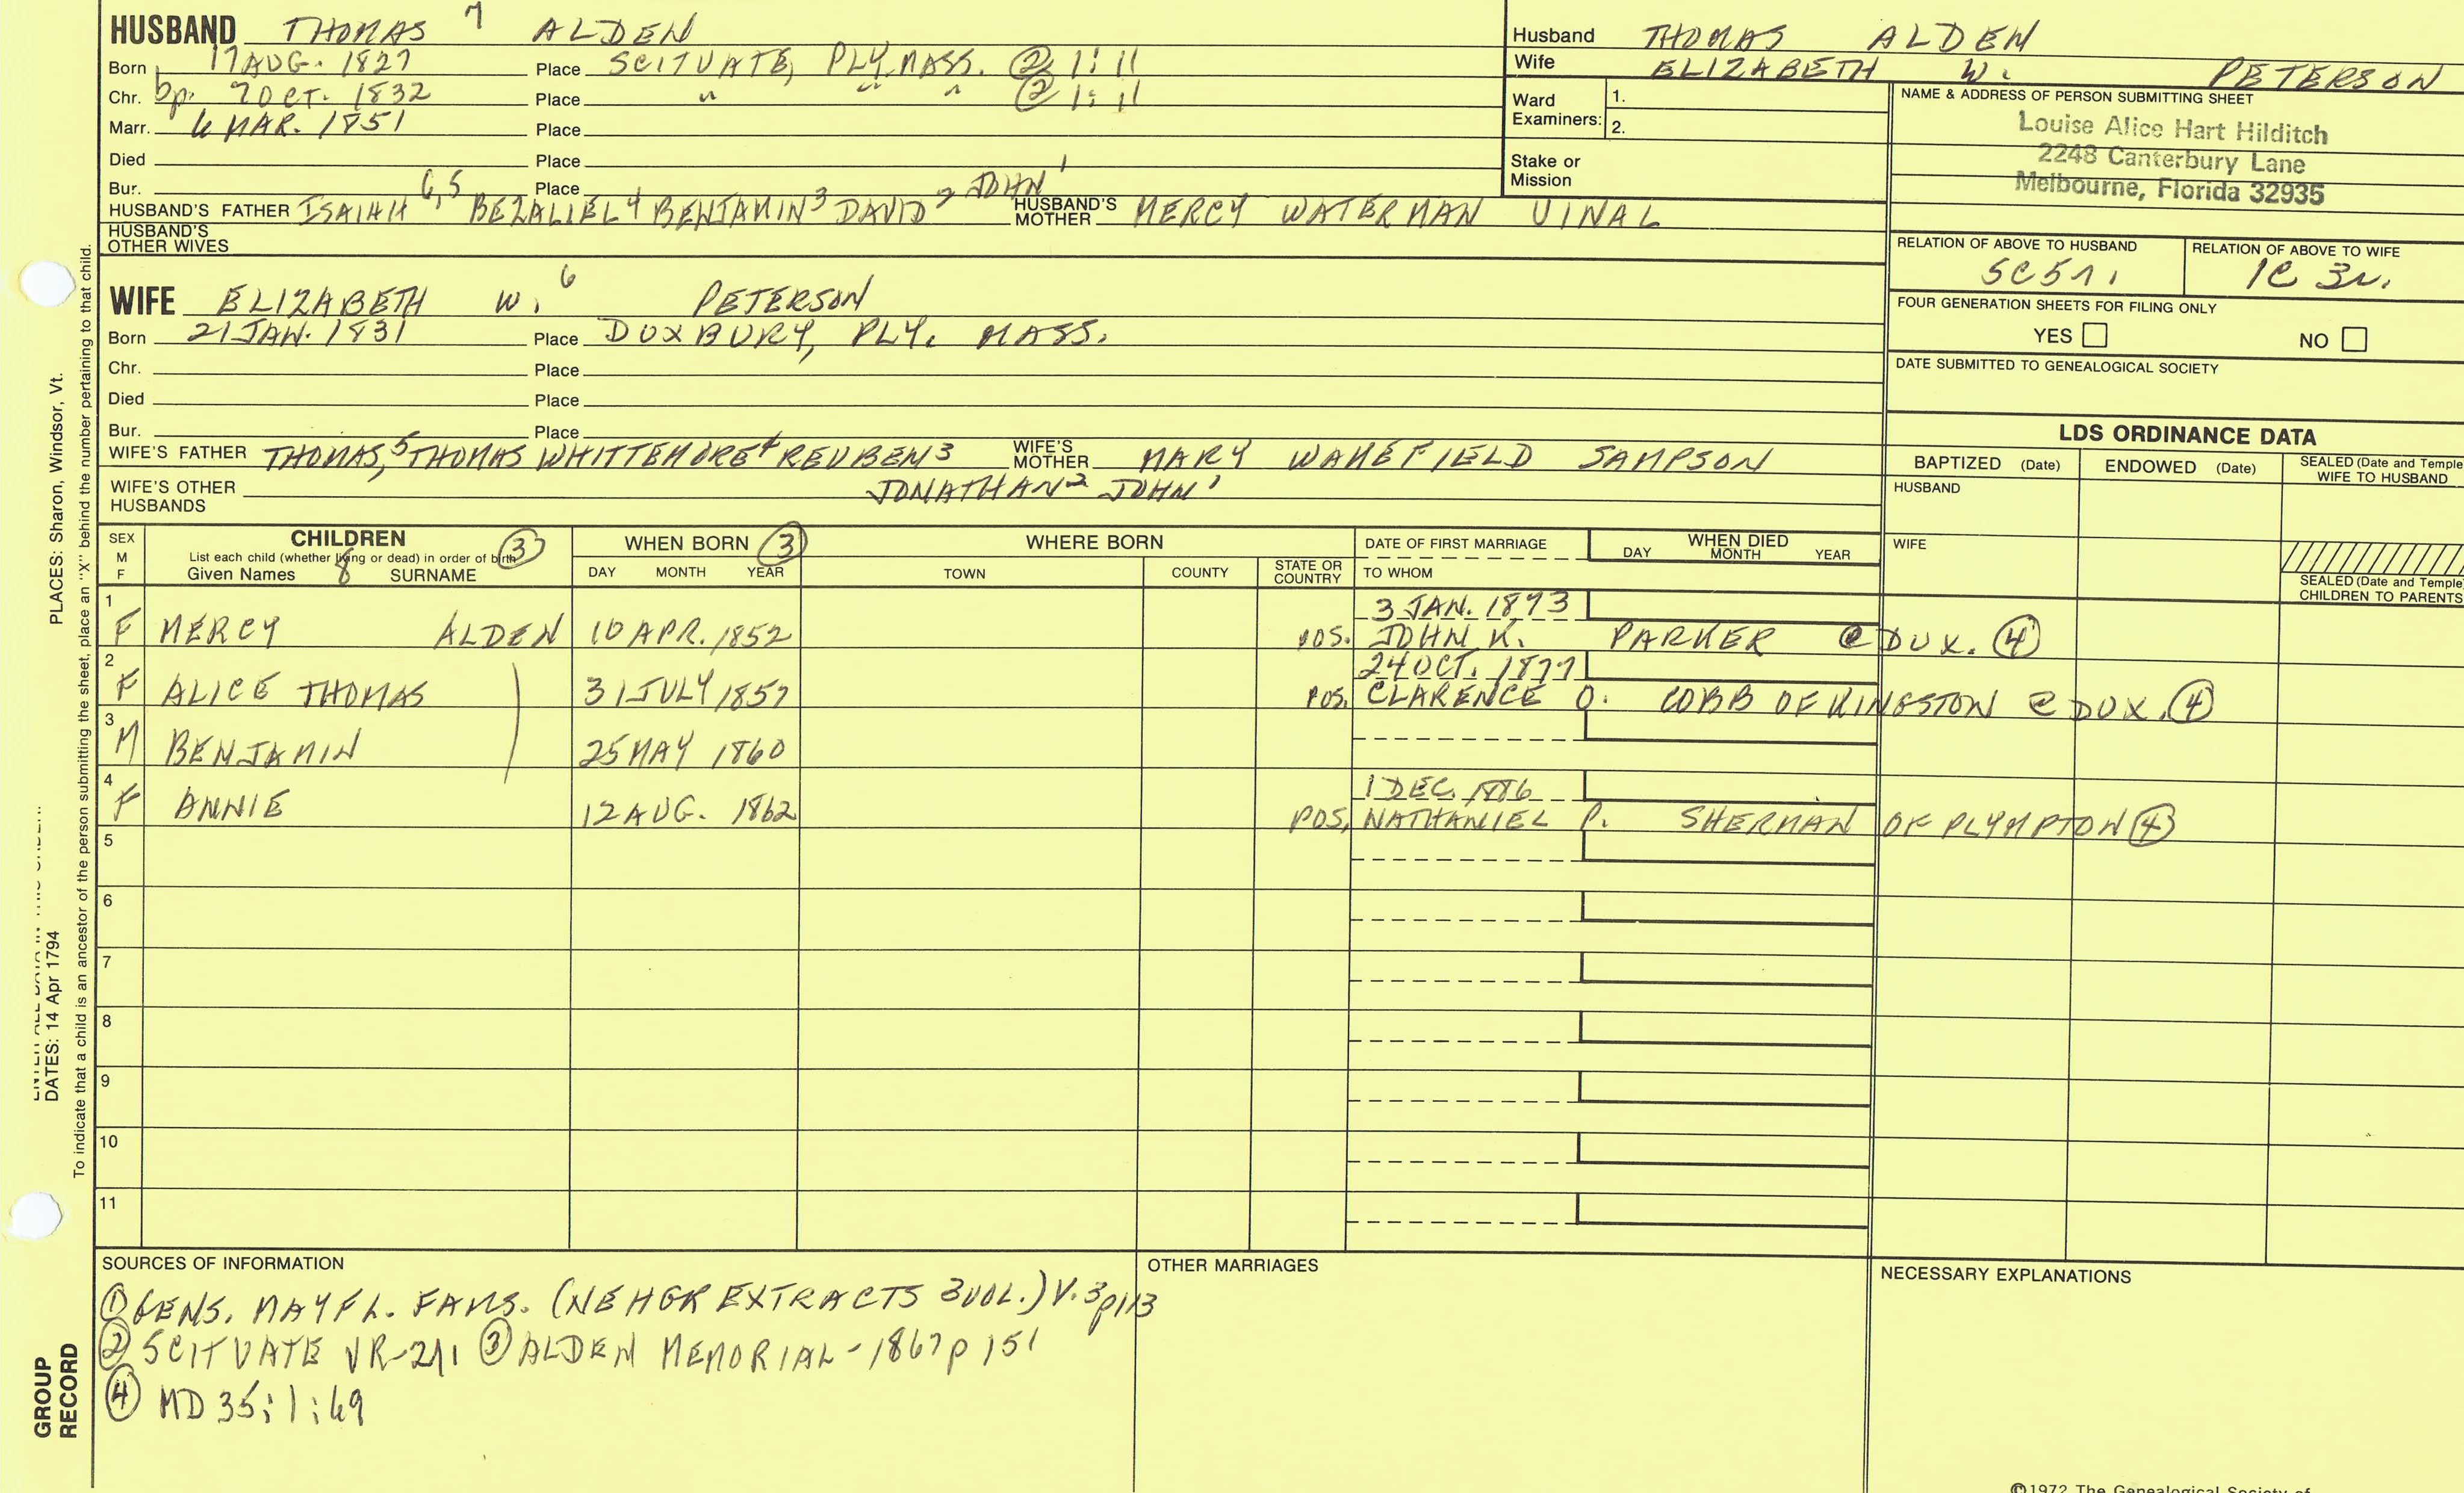 HUSBAND THOMAS 7 ALDEN
Born 17 AUG. 1827 Place SCITUATE, PLY. MASS. ② 1:11
Chr. bp. 7 OCT. 1832 Place " " " ② 1:11
Marr. 6 MAR. 1851 Place
Died Place
Bur. Place
HUSBAND'S FATHER ISAIAH 6,5 BEZALIEL 4 BENJAMIN 3 DAVID 2 JOHN 1 HUSBAND'S MOTHER MERCY WATERMAN VINAL
HUSBAND'S OTHER WIVES
Husband THOMAS ALDEN
Wife ELIZABETH W. PETERSON
Ward Examiners: 1.
2.
Stake or Mission
NAME & ADDRESS OF PERSON SUBMITTING SHEET
Louise Alice Hart Hilditch
2248 Canterbury Lane
Melbourne, Florida 32935
RELATION OF ABOVE TO HUSBAND RELATION OF ABOVE TO WIFE
5C5r. 1C 3r.
FOUR GENERATION SHEETS FOR FILING ONLY
YES NO
DATE SUBMITTED TO GENEALOGICAL SOCIETY
WIFE ELIZABETH W. 6 PETERSON
Born 21 JAN. 1831 Place DUXBURY, PLY. MASS.
Chr. Place
Died Place
Bur. Place
WIFE'S FATHER THOMAS, 5 THOMAS WHITTEMORE 4 REUBEN 3 WIFE'S MOTHER MARY WAKEFIELD SAMPSON
JONATHAN 2 JOHN 1
WIFE'S OTHER HUSBANDS
LDS ORDINANCE DATA
BAPTIZED (Date) ENDOWED (Date) SEALED (Date and Temple) WIFE TO HUSBAND
HUSBAND
WIFE
SEALED (Date and Temple) CHILDREN TO PARENTS
SEX M F CHILDREN ③ WHEN BORN ③ WHERE BORN DATE OF FIRST MARRIAGE WHEN DIED
List each child (whether living or dead) in order of birth DAY MONTH YEAR
Given Names 8 SURNAME DAY MONTH YEAR TOWN COUNTY STATE OR COUNTRY TO WHOM
1 3 JAN. 1873
F MERCY ALDEN 10 APR. 1852 POS. JOHN K. PARKER @ DUX. ④
2 24 OCT. 1877
F ALICE THOMAS 31 JULY 1857 POS. CLARENCE O. COBB OF KINGSTON @ DUX. ④
3
M BENJAMIN 25 MAY 1860
4 1 DEC. 1886
F ANNIE 12 AUG. 1862 POS. NATHANIEL P. SHERMAN OF PLYMPTON ④
5
6
7
8
9
10
11
SOURCES OF INFORMATION
① GENS. MAYFL. FAMS. (NEHGR EXTRACTS 3 VOL.) V. 3 p113
② SCITUATE VR- ③ ALDEN MEMORIAL - 1867 p 151
④ MD 35:1:69
OTHER MARRIAGES
NECESSARY EXPLANATIONS
©1972 The Genealogical Society of
PLACES: Sharon, Windsor, Vt.
DATES: 14 Apr 1794
To indicate that a child is an ancestor of the person submitting the sheet, place an "X" behind the number pertaining to that child.
GROUP RECORD